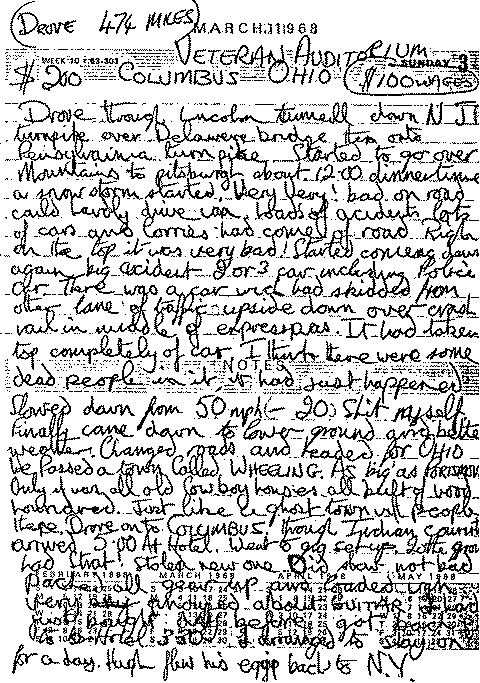 (DROVE 474 MILES) MARCH 3 1968
VETERAN AUDITORIUM
WEEK 10 • 63-303 SUNDAY 3
$200 COLUMBUS OHIO ($100 WAGES)
Drove through Lincoln tunnell down N J
turnpike over Delawere bridge then onto
Pensylvainia turnpike. Started to go over
Mountains to pitsburgh about 12.00 dinner time
a snow storm started. Very Very! bad on road
could barly drive van. Loads of acidents, lots
of cars and lorries had come of road. Right
on the top it was very bad! Started coming down
again, big acident 2 or 3 car including Police
car. There was a car wich had skidded from
other lane of traffic upside down over crash
rail in middle of expressway. It had taken
top completely of car. I think there were some
NOTES
dead people in it, it had just happened
Slowed down from 50 mph - 20. Shit myself
Finally came down to lower ground and better
weather. Changed roads and headed for OHIO
We Passed a town called WHEELING. As big as
only all old cowboy houses all built of wood
Just like a ghost town with people
there. Drove on to COLUMBUS, through Indian country
arrived 5.00 At Hotel. Went to gig set up.
had that! Stolen new one. Did show not bad
FEBRUARY 1968 MARCH 1968 APRIL 1968 MAY 1968
Packed all gear up and loaded
annoyed about GUITAR I had
just bought before got
to Hotel 3.30. I arranged to stay on
for a day. Hugh flew his back to N.Y.